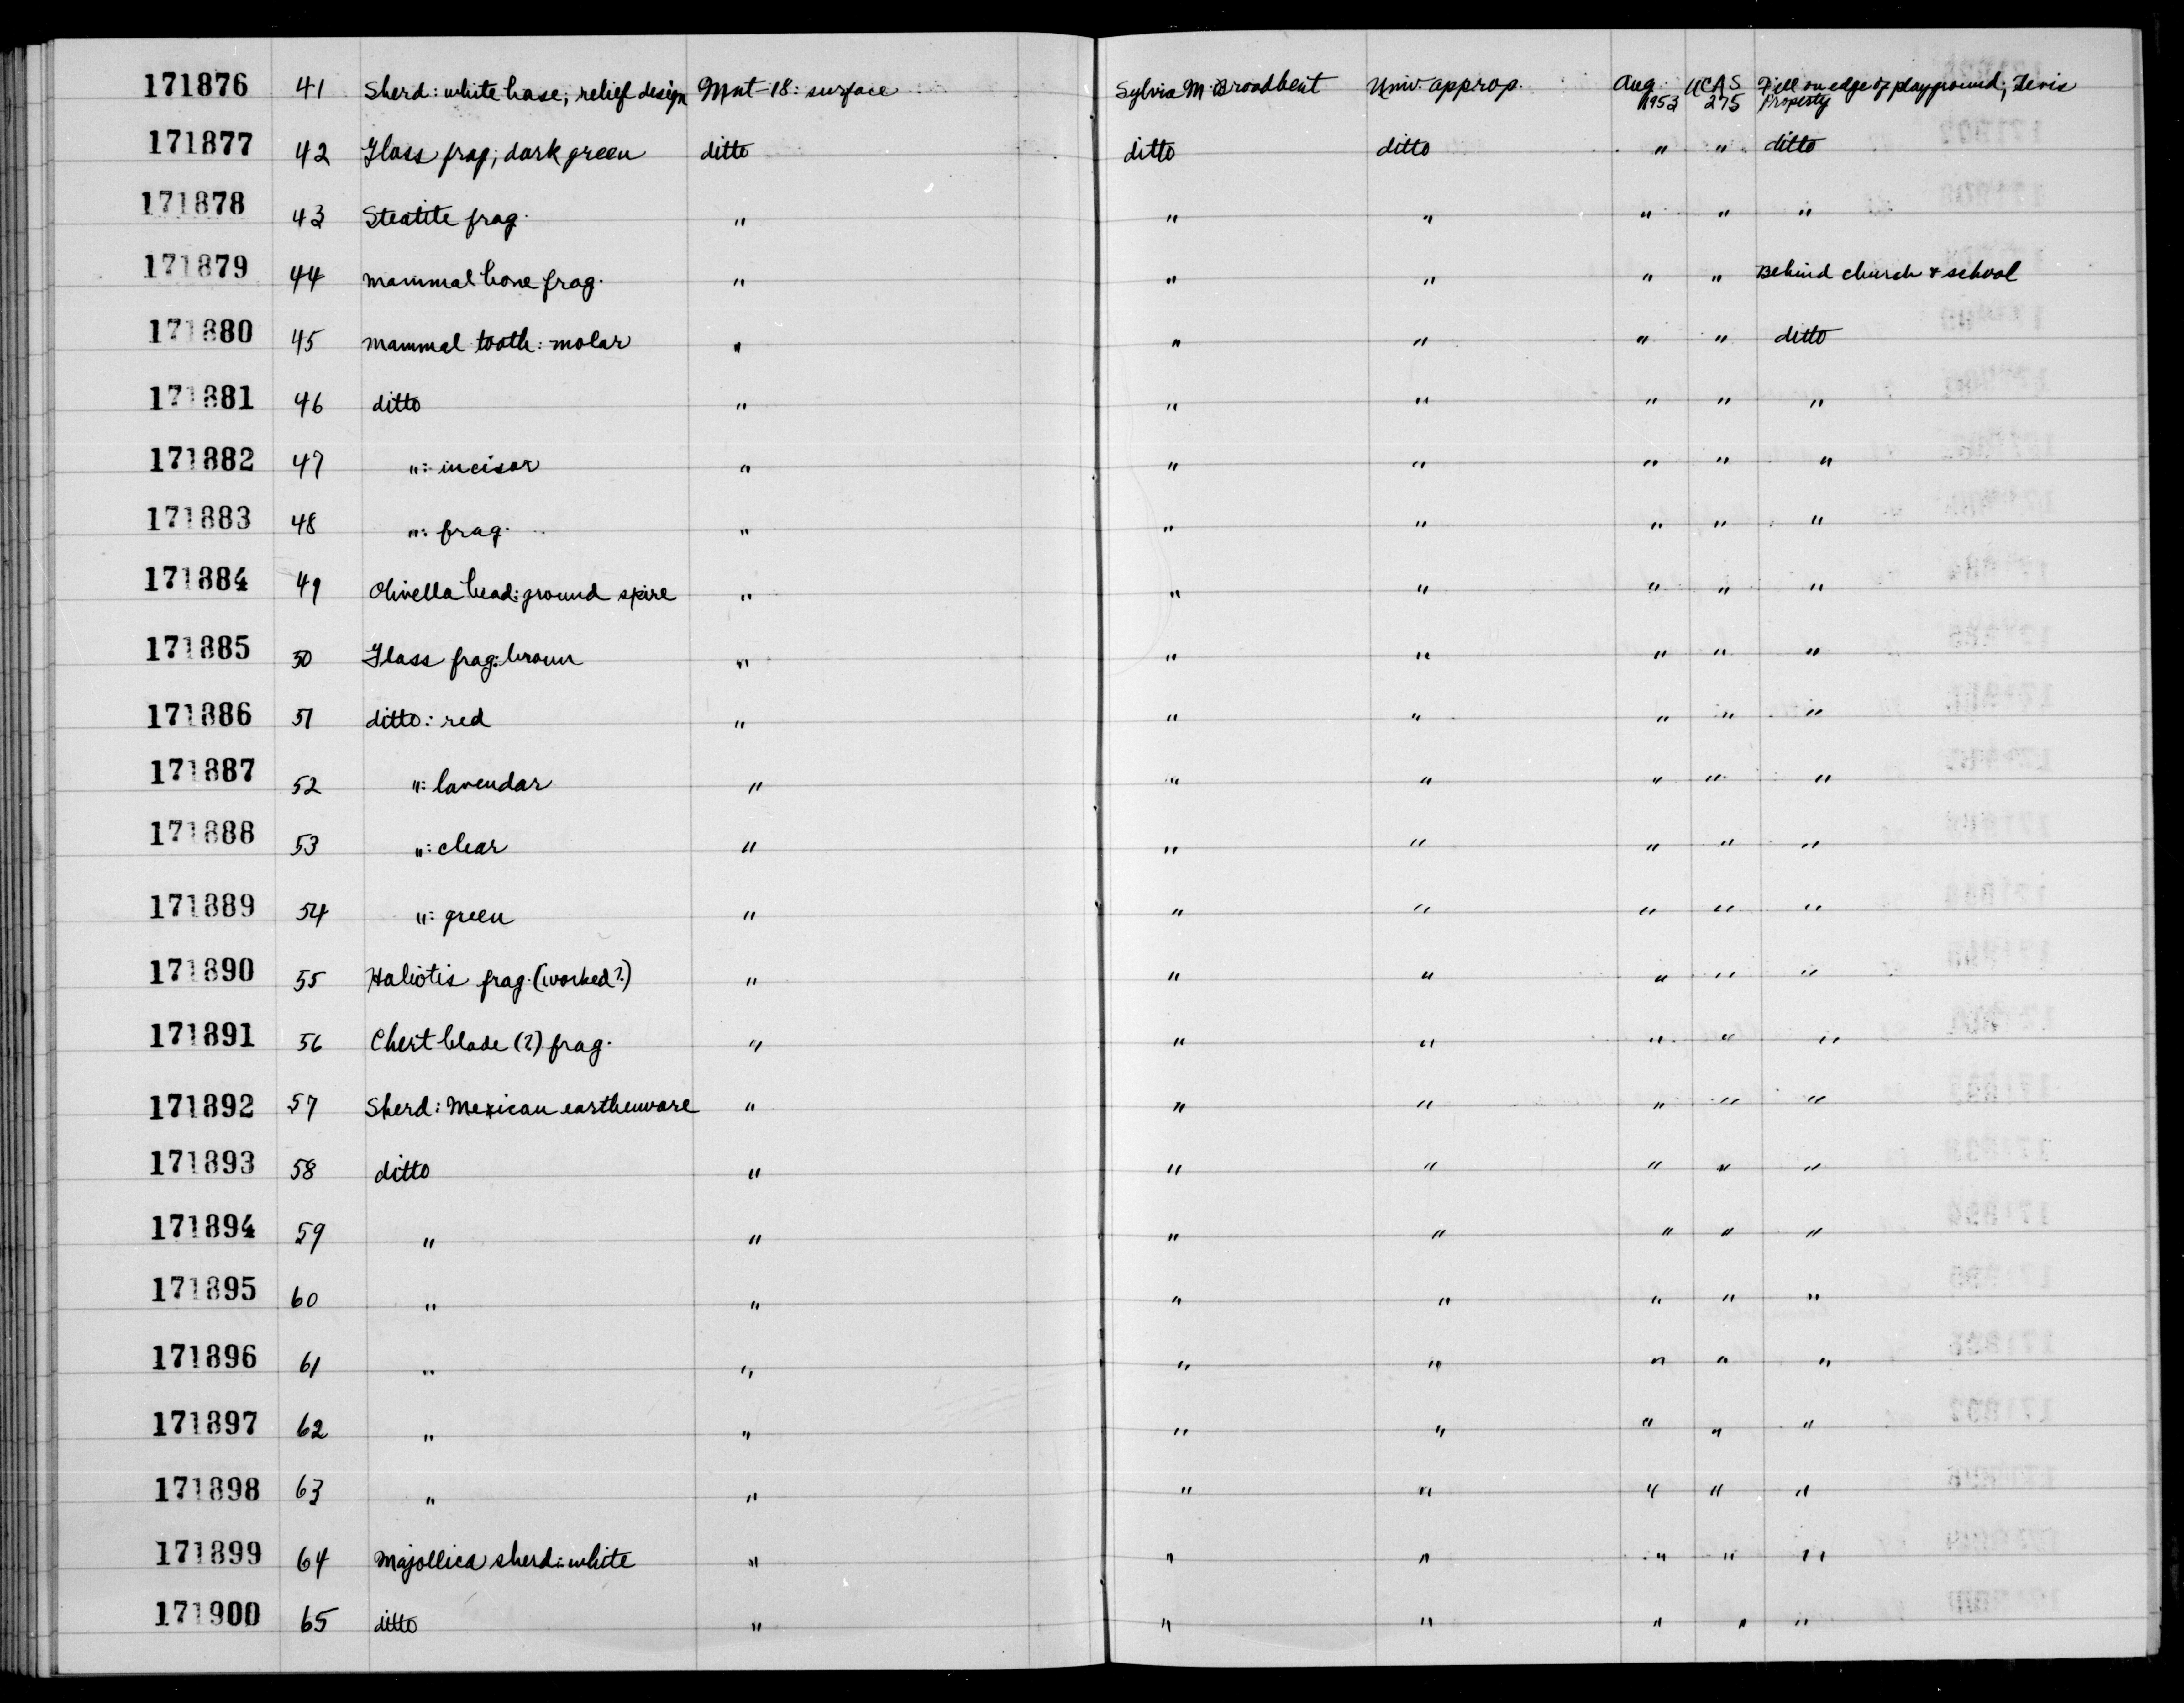 171876 41 Sherd: white base; relief design Mnt-18: surface Sylvia M. Broadbent Univ. approp. Aug 1953 UCAS 275 Fill on edge of playground; Tevis Property
171877 42 Glass frag; dark green ditto ditto ditto " " ditto
171878 43 Steatite frag. " " " " " "
171879 44 mammal bone frag. " " " " " Behind church & school
171880 45 mammal tooth: molar " " " " " ditto
171881 46 ditto " " " " " "
171882 47 ": incisor " " " " " "
171883 48 ": frag. " " " " " "
171884 49 Olivella bead: ground spire " " " " " "
171885 50 Glass frag: brown " " " " " "
171886 51 ditto: red " " " " " "
171887 52 ": lavendar " " " " " "
171888 53 ": clear " " " " " "
171889 54 ": green " " " " " "
171890 55 Haliotis frag. (worked?) " " " " " "
171891 56 Chert blade (?) frag. " " " " " "
171892 57 Sherd: Mexican earthenware " " " " " "
171893 58 ditto " " " " " "
171894 59 " " " " " " "
171895 60 " " " " " " "
171896 61 " " " " " " "
171897 62 " " " " " " "
171898 63 " " " " " " "
171899 64 Majollica sherd: white " " " " " "
171900 65 ditto " " " " " "